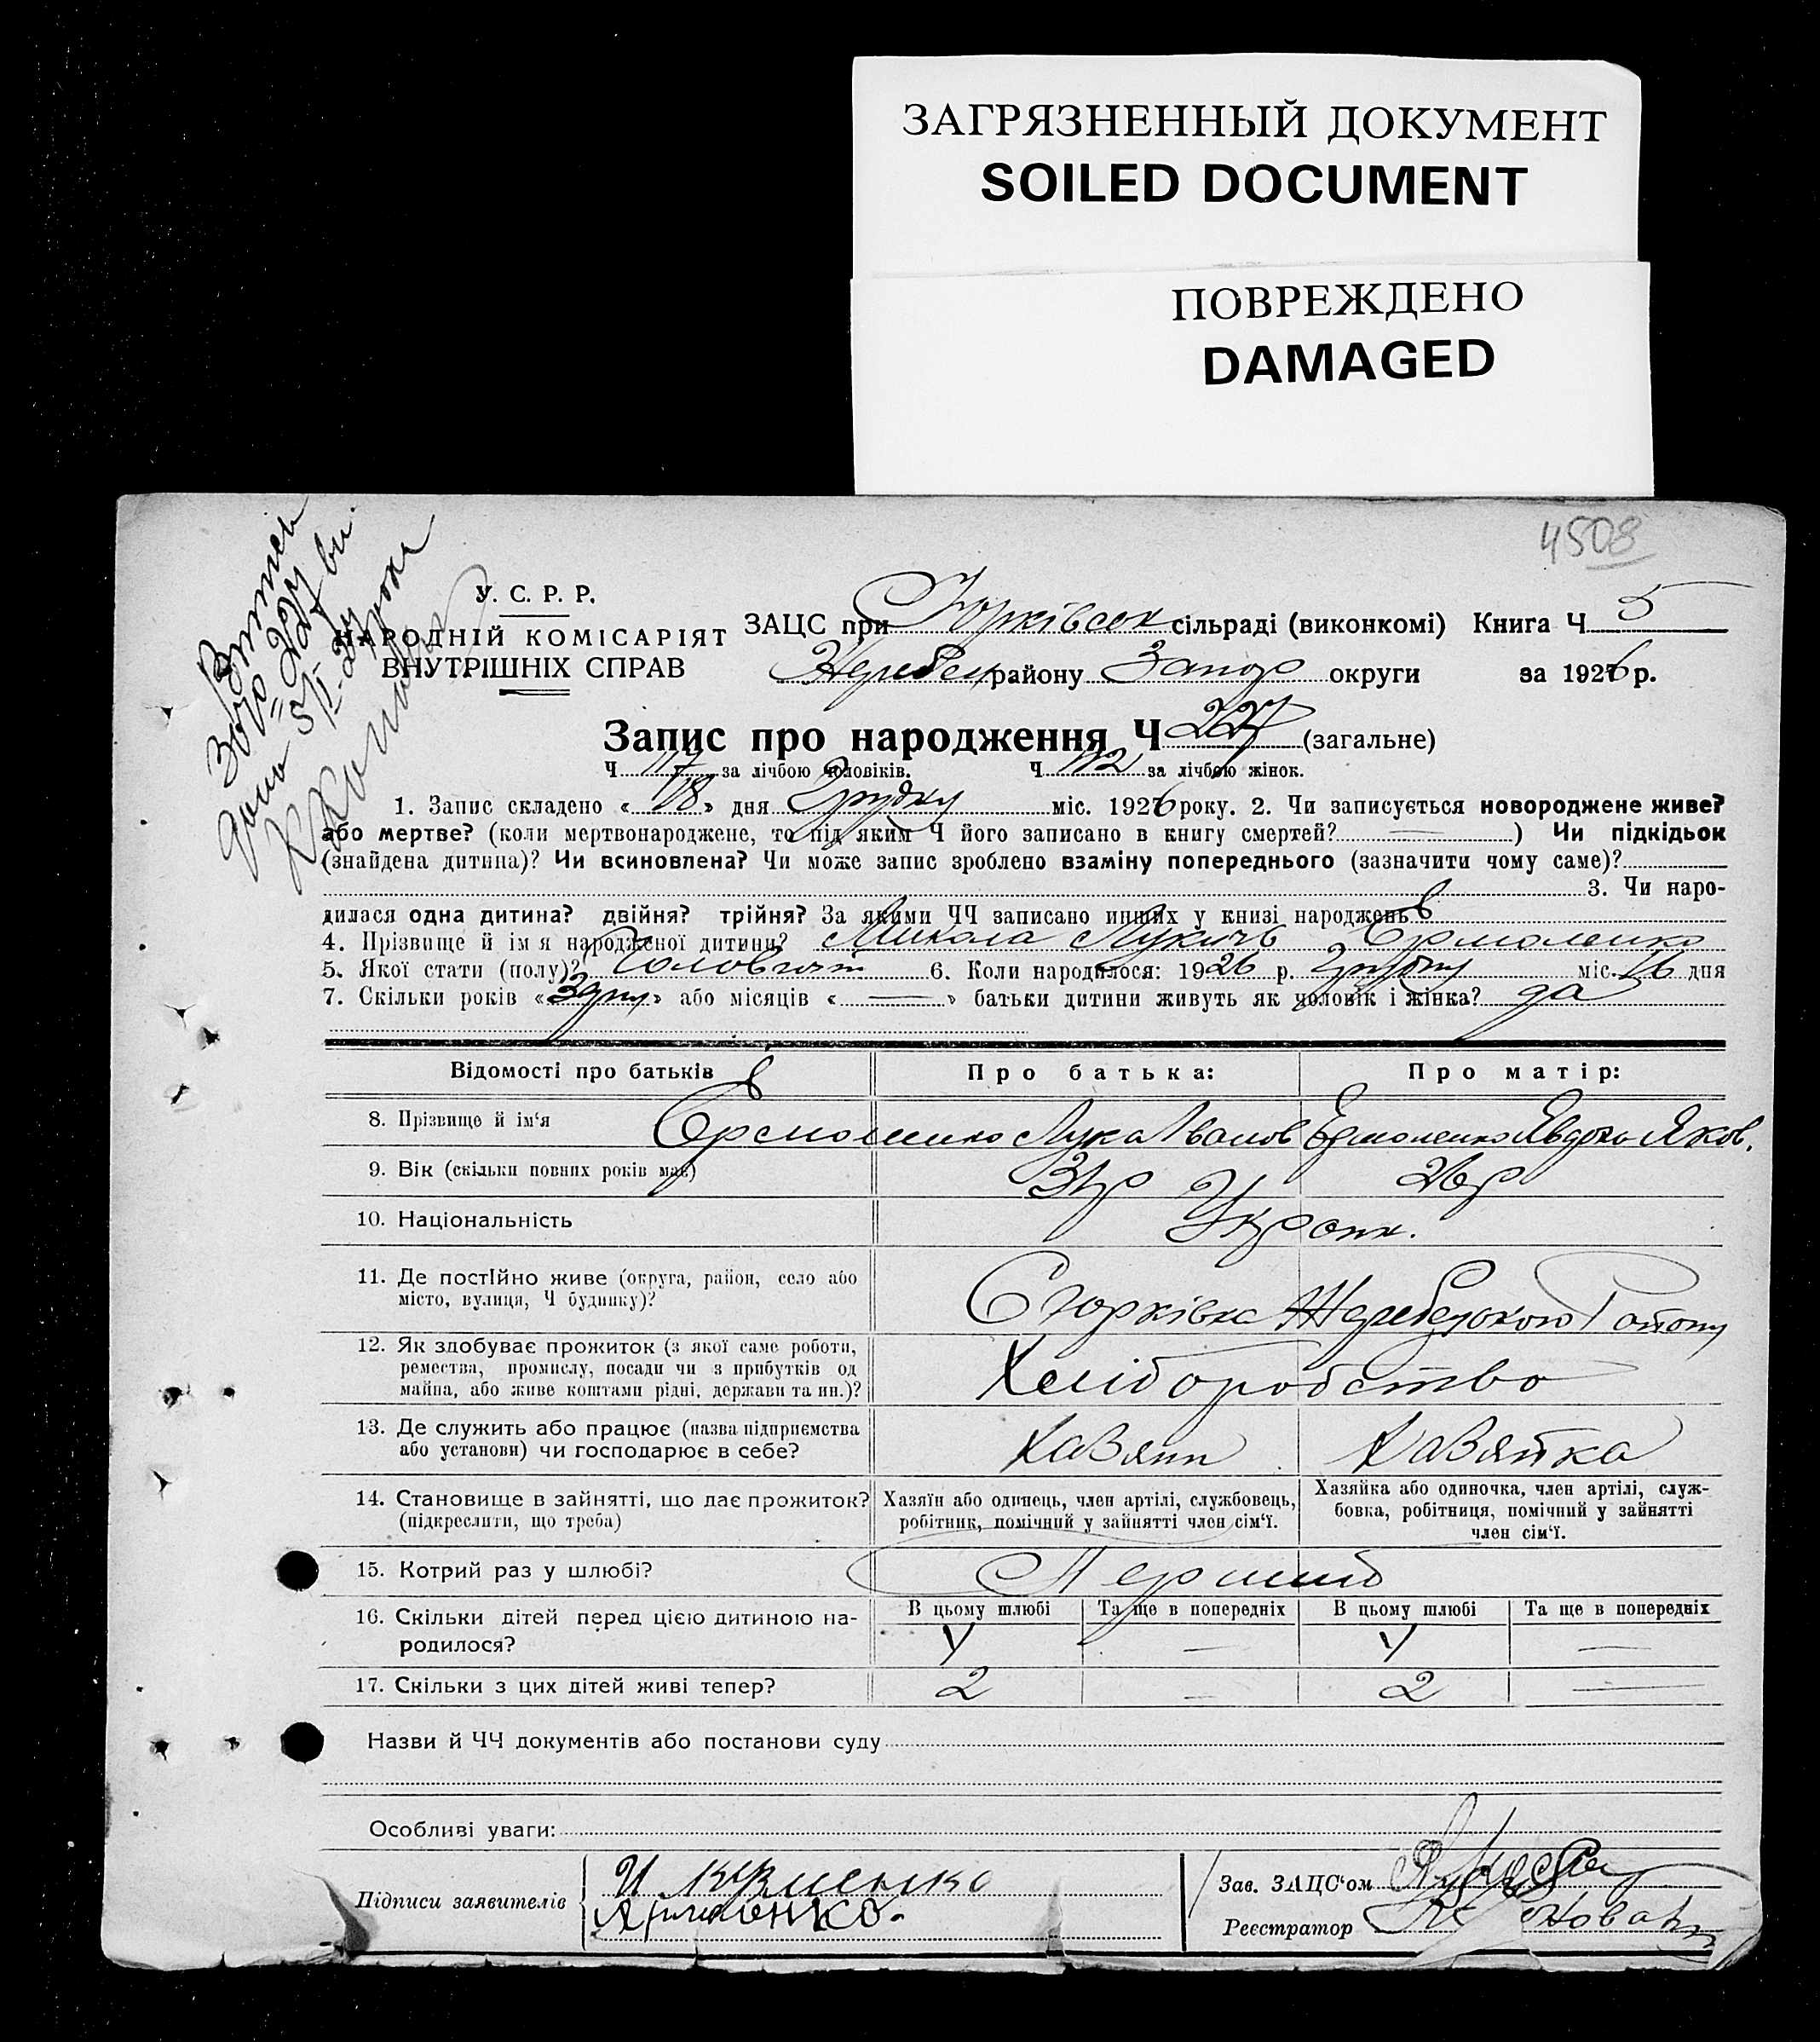 ЗАГРЯЗНЕННЫЙ ДОКУМЕНТ
SOILED DOCUMENT
ПОВРЕЖДЕНО
DAMAGED
4508
У. С. Р. Р.
НАРОДНІЙ КОМІСАРІЯТ
ВНУТРІШНІХ СПРАВ
ЗАЦС при Юрківськ сільраді (виконкомі) Книга Ч 5
Жеребец району Запор округи за 1926 р.
Запис про народження Ч 227 (загальне)
Ч за лічбою чоловіків. Ч 112 за лічбою жінок.
1. Запис складено « 18 » дня Грудню міс. 1926 року. 2. Чи записується новороджене живе?
або мертве? (коли мертвонароджене, то під яким Ч його записано в книгу смертей? — ) Чи підкідьок
(знайдена дитина)? Чи всиновлена? Чи може запис зроблено взаміну попереднього (зазначити чому саме)?
3. Чи наро-
дилася одна дитина? двійня? трійня? За якими ЧЧ записано инших у книзі народжень
4. Прізвище й імя народженої дитини? Микола Лукичь Ермоленко
5. Якої стати (полу)? 6. Коли народилося: 1926 р. Грудню міс. 16 дня
7. Скільки років « » або місяців « — » батьки дитини живуть як чоловік і жінка? да
Відомості про батьків
Про батька:
Про матір:
8. Прізвище й ім'я Ермоленко Лука Іванов Ермоленко Явдоха Яков.
9. Вік (скільки повних років має) 31 р 26 р
10. Національність
11. Де постійно живе (округа, район, село або
місто, вулиця, Ч будинку)?
С Юрківка Жеребецького Району
12. Як здобуває прожиток (з якої саме роботи,
ремества, промислу, посади чи з прибутків од
майна, або живе коштами рідні, держави та ин.)?
Хліборобство
13. Де служить або працює (назва підприємства
або установи) чи господарює в себе?
Хазяин Хазяйка
14. Становище в зайнятті, що дає прожиток?
(підкреслити, що треба)
Хазяїн або одинець, член артілі, службовець,
робітник, помічний у зайнятті член сім'ї.
Хазяйка або одиночка, член артілі, служ-
бовка, робітниця, помічний у зайнятті
член сім'ї.
15. Котрий раз у шлюбі? Перший
16. Скільки дітей перед цією дитиною на-
родилося?
В цьому шлюбі Та ще в попередніх В цьому шлюбі Та ще в попередніх
— —
17. Скільки з цих дітей живі тепер? 2 — 2 —
Назви й ЧЧ документів або постанови суду
Особливі уваги:
Підписи заявителів
Зав. ЗАЦС'ом
Реєстратор